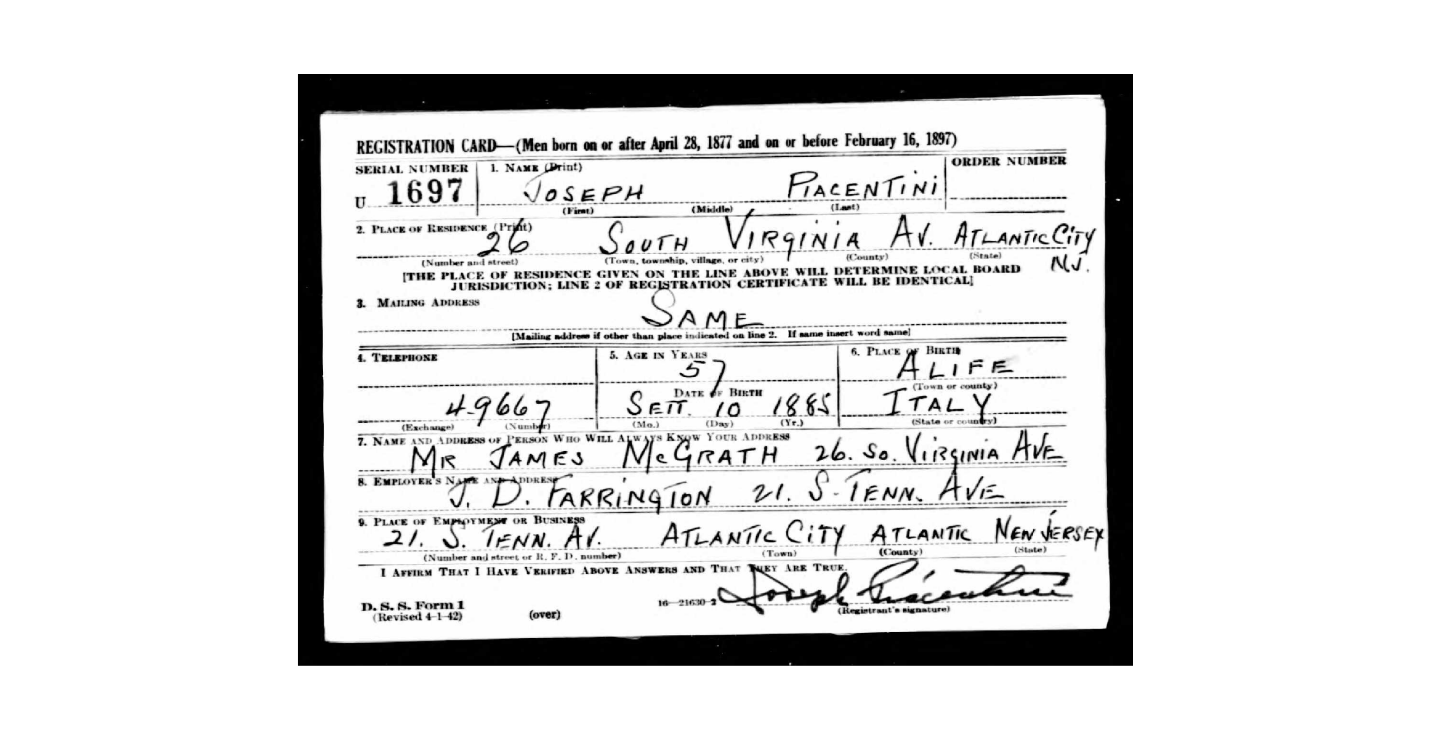 REGISTRATION CARD—(Men born on or after April 28, 1877 and on or before February 16, 1897)
SERIAL NUMBER 1. NAME (Print) ORDER NUMBER
U 1697 JOSEPH PIACENTINI
(First) (Middle) (Last)
2. PLACE OF RESIDENCE (Print)
26 SOUTH VIRGINIA AV. ATLANTIC CITY
(Number and street) (Town, township, village, or city) (County) (State)
N.J.
[THE PLACE OF RESIDENCE GIVEN ON THE LINE ABOVE WILL DETERMINE LOCAL BOARD
JURISDICTION; LINE 2 OF REGISTRATION CERTIFICATE WILL BE IDENTICAL]
3. MAILING ADDRESS
SAME
[Mailing address if other than place indicated on line 2. If same insert word same]
4. TELEPHONE 5. AGE IN YEARS 6. PLACE OF BIRTH
57 ALIFE
DATE OF BIRTH (Town or county)
4-9667 SETT. 10 1885 ITALY
(Exchange) (Number) (Mo.) (Day) (Yr.) (State or country)
7. NAME AND ADDRESS OF PERSON WHO WILL ALWAYS KNOW YOUR ADDRESS
MR JAMES McGRATH 26. So. VIRGINIA AVE
8. EMPLOYER'S NAME AND ADDRESS
J. D. FARRINGTON 21. S-TENN. AVE
9. PLACE OF EMPLOYMENT OR BUSINESS
21. S. TENN. AV. ATLANTIC CITY ATLANTIC NEW JERSEY
(Number and street or R. F. D. number) (Town) (County) (State)
I AFFIRM THAT I HAVE VERIFIED ABOVE ANSWERS AND THAT THEY ARE TRUE.
Joseph Piacentini
D. S. S. Form 1 16—21630-2 (Registrant's signature)
(Revised 4-1-42) (over)